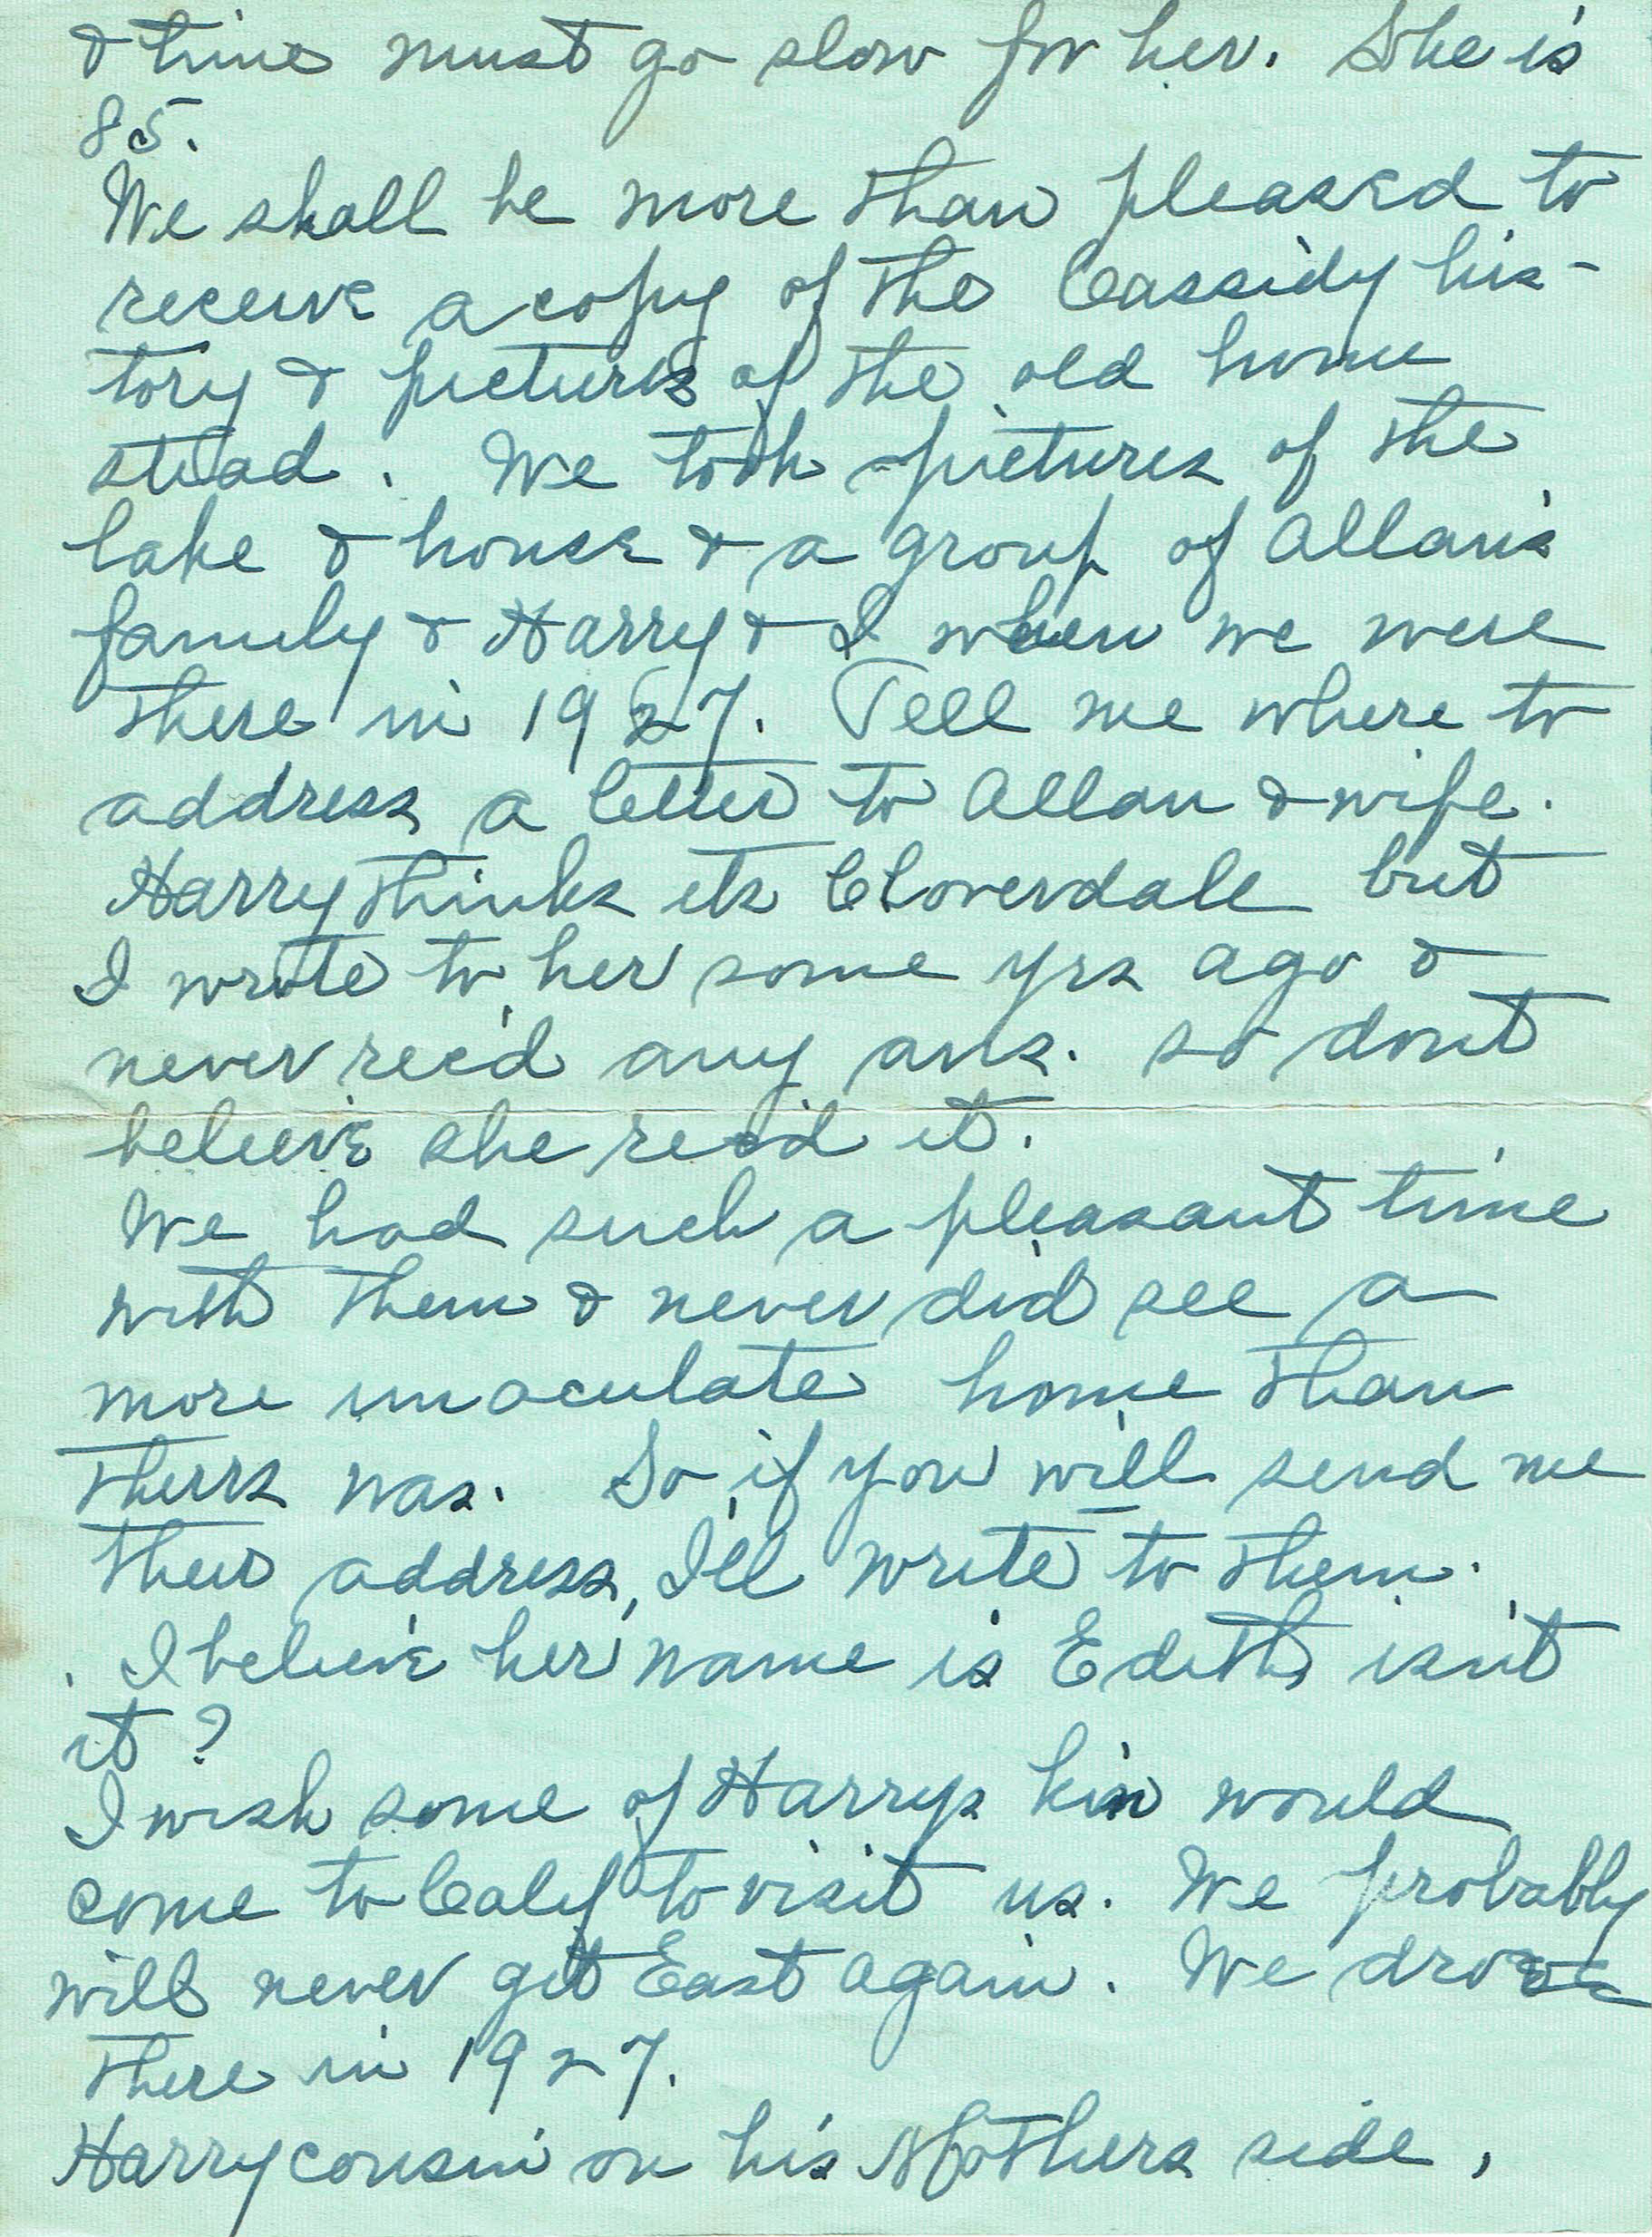 & time must go slow for her. She is
85.
We shall be more than pleased to
receive a copy of the Cassidy his-
tory & pictures of the old home
stead. We took pictures of the
lake & house & a group of Allan's
family & Harry & I when we were
there in 1927. Tell me where to
address a letter to Allan & wife.
Harry thinks its Cloverdale but
I wrote to her some yrs ago &
never rec'd any ans. so dont
believe she rec'd it.
We had such a pleasant time
with them & never did see a
more imaculate home than
theirs was. So if you will send me
their address, I'll write to them.
. I believe her name is Edith, isn't
it?
I wish some of Harrys kin would
come to Calif to visit us. We probably
will never git East again. We drove
there in 1927.
Harry cousin on his Mothers side,